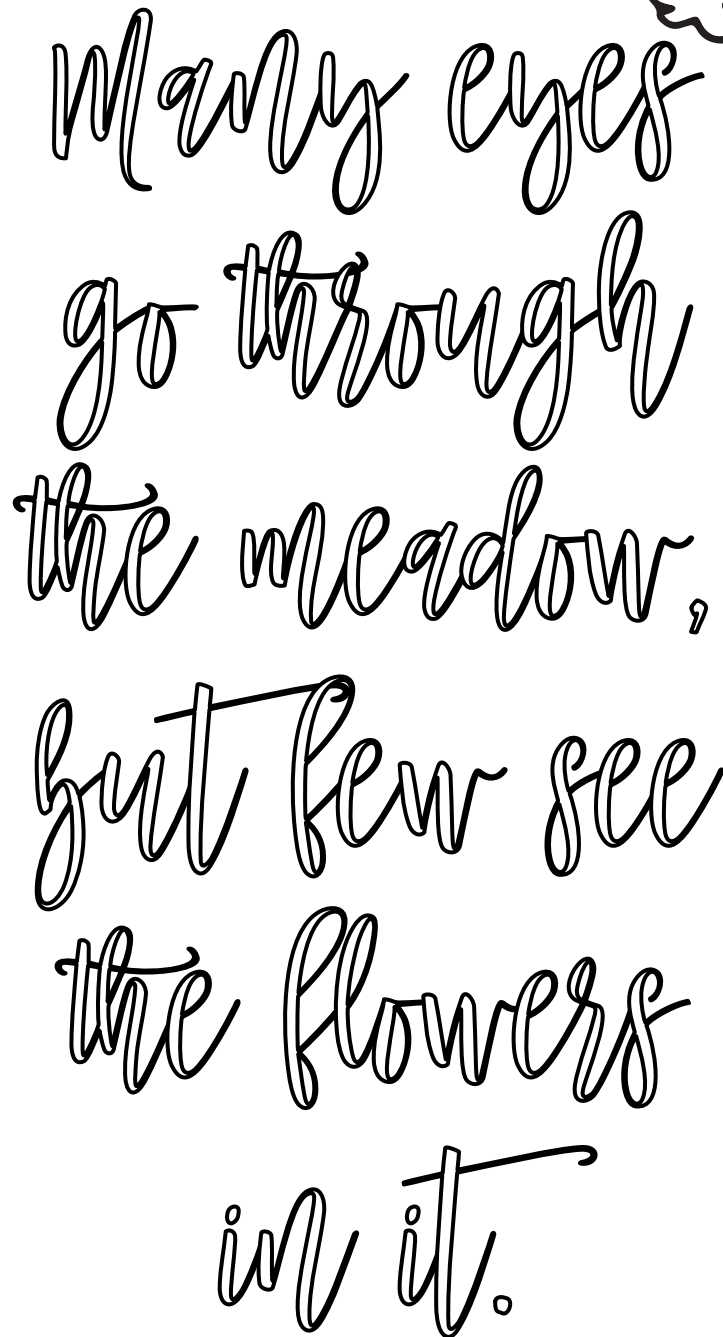 Many eyes
go through
the meadow,
but few see
the flowers
in it.